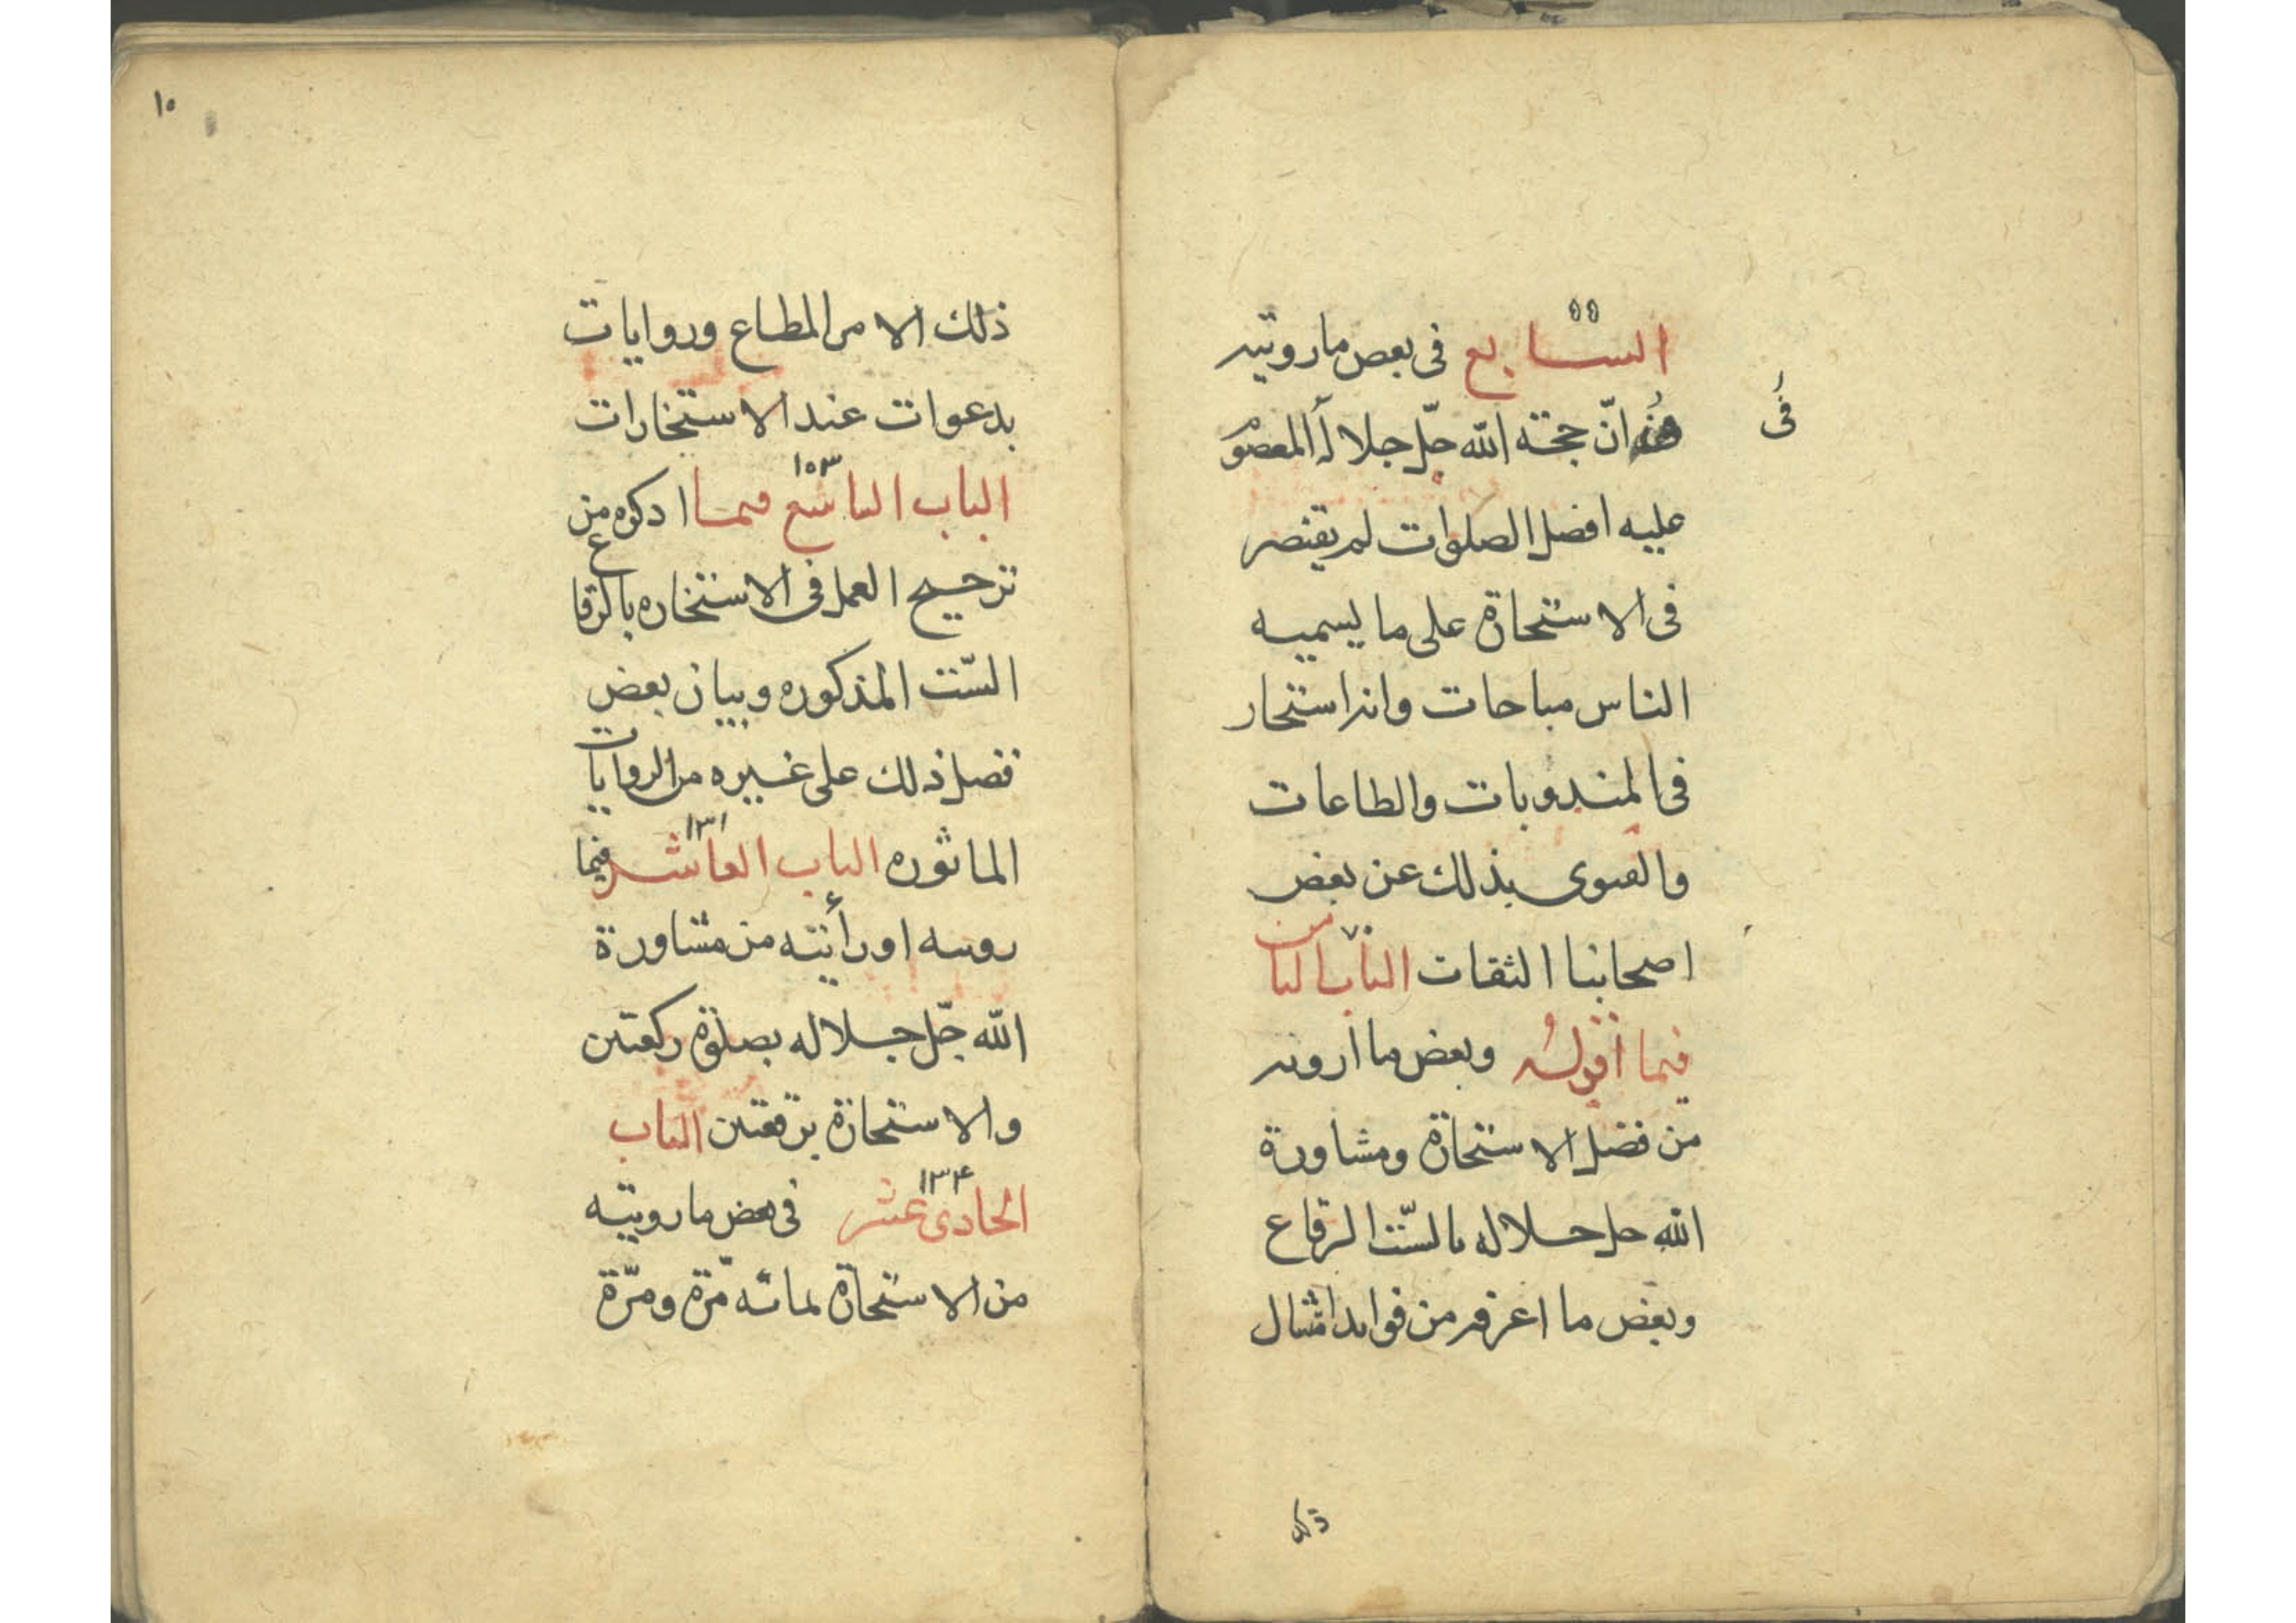 ۵۵
السابع فى بعض ما رويته
فى
ان حجة الله جلّ جلاله المعصوم
عليه افضل الصلوات لم يقتصر
فى الاستخارة على ما يسميه
الناس مباحات وانه استخار
فى المندوبات والطاعات
والفتوى بذلك عن بعض
اصحابنا الثقات الباب الثامن
فيما أقوله وبعض ما ارويه
من فضل الاستخارة ومشاورة
الله جل جلاله بالسّت الرقاع
وبعض ما اعرفه من فوايد امتثال
ذلك
۱۰
ذلك الامر المطاع وروايات
بدعوات عند الاستخارات
۱۰۳
الباب التاسع فيما اذكره من
ترجيح العمل فى الاستخاره بالرقاع
السّت المذكوره وبيان بعض
فضل ذلك على غيره من الروايات
۱۳۱
الماثوره الباب العاشر فيما
رويته او رأيته من مشاورة
الله جلّ جلاله بصلوة ركعتين
والاستخارة برقعتين الباب
۱۳۴
الحادى عشر فى بعض ما رويته
من الاستخارة بمائة مرّة ومرّة